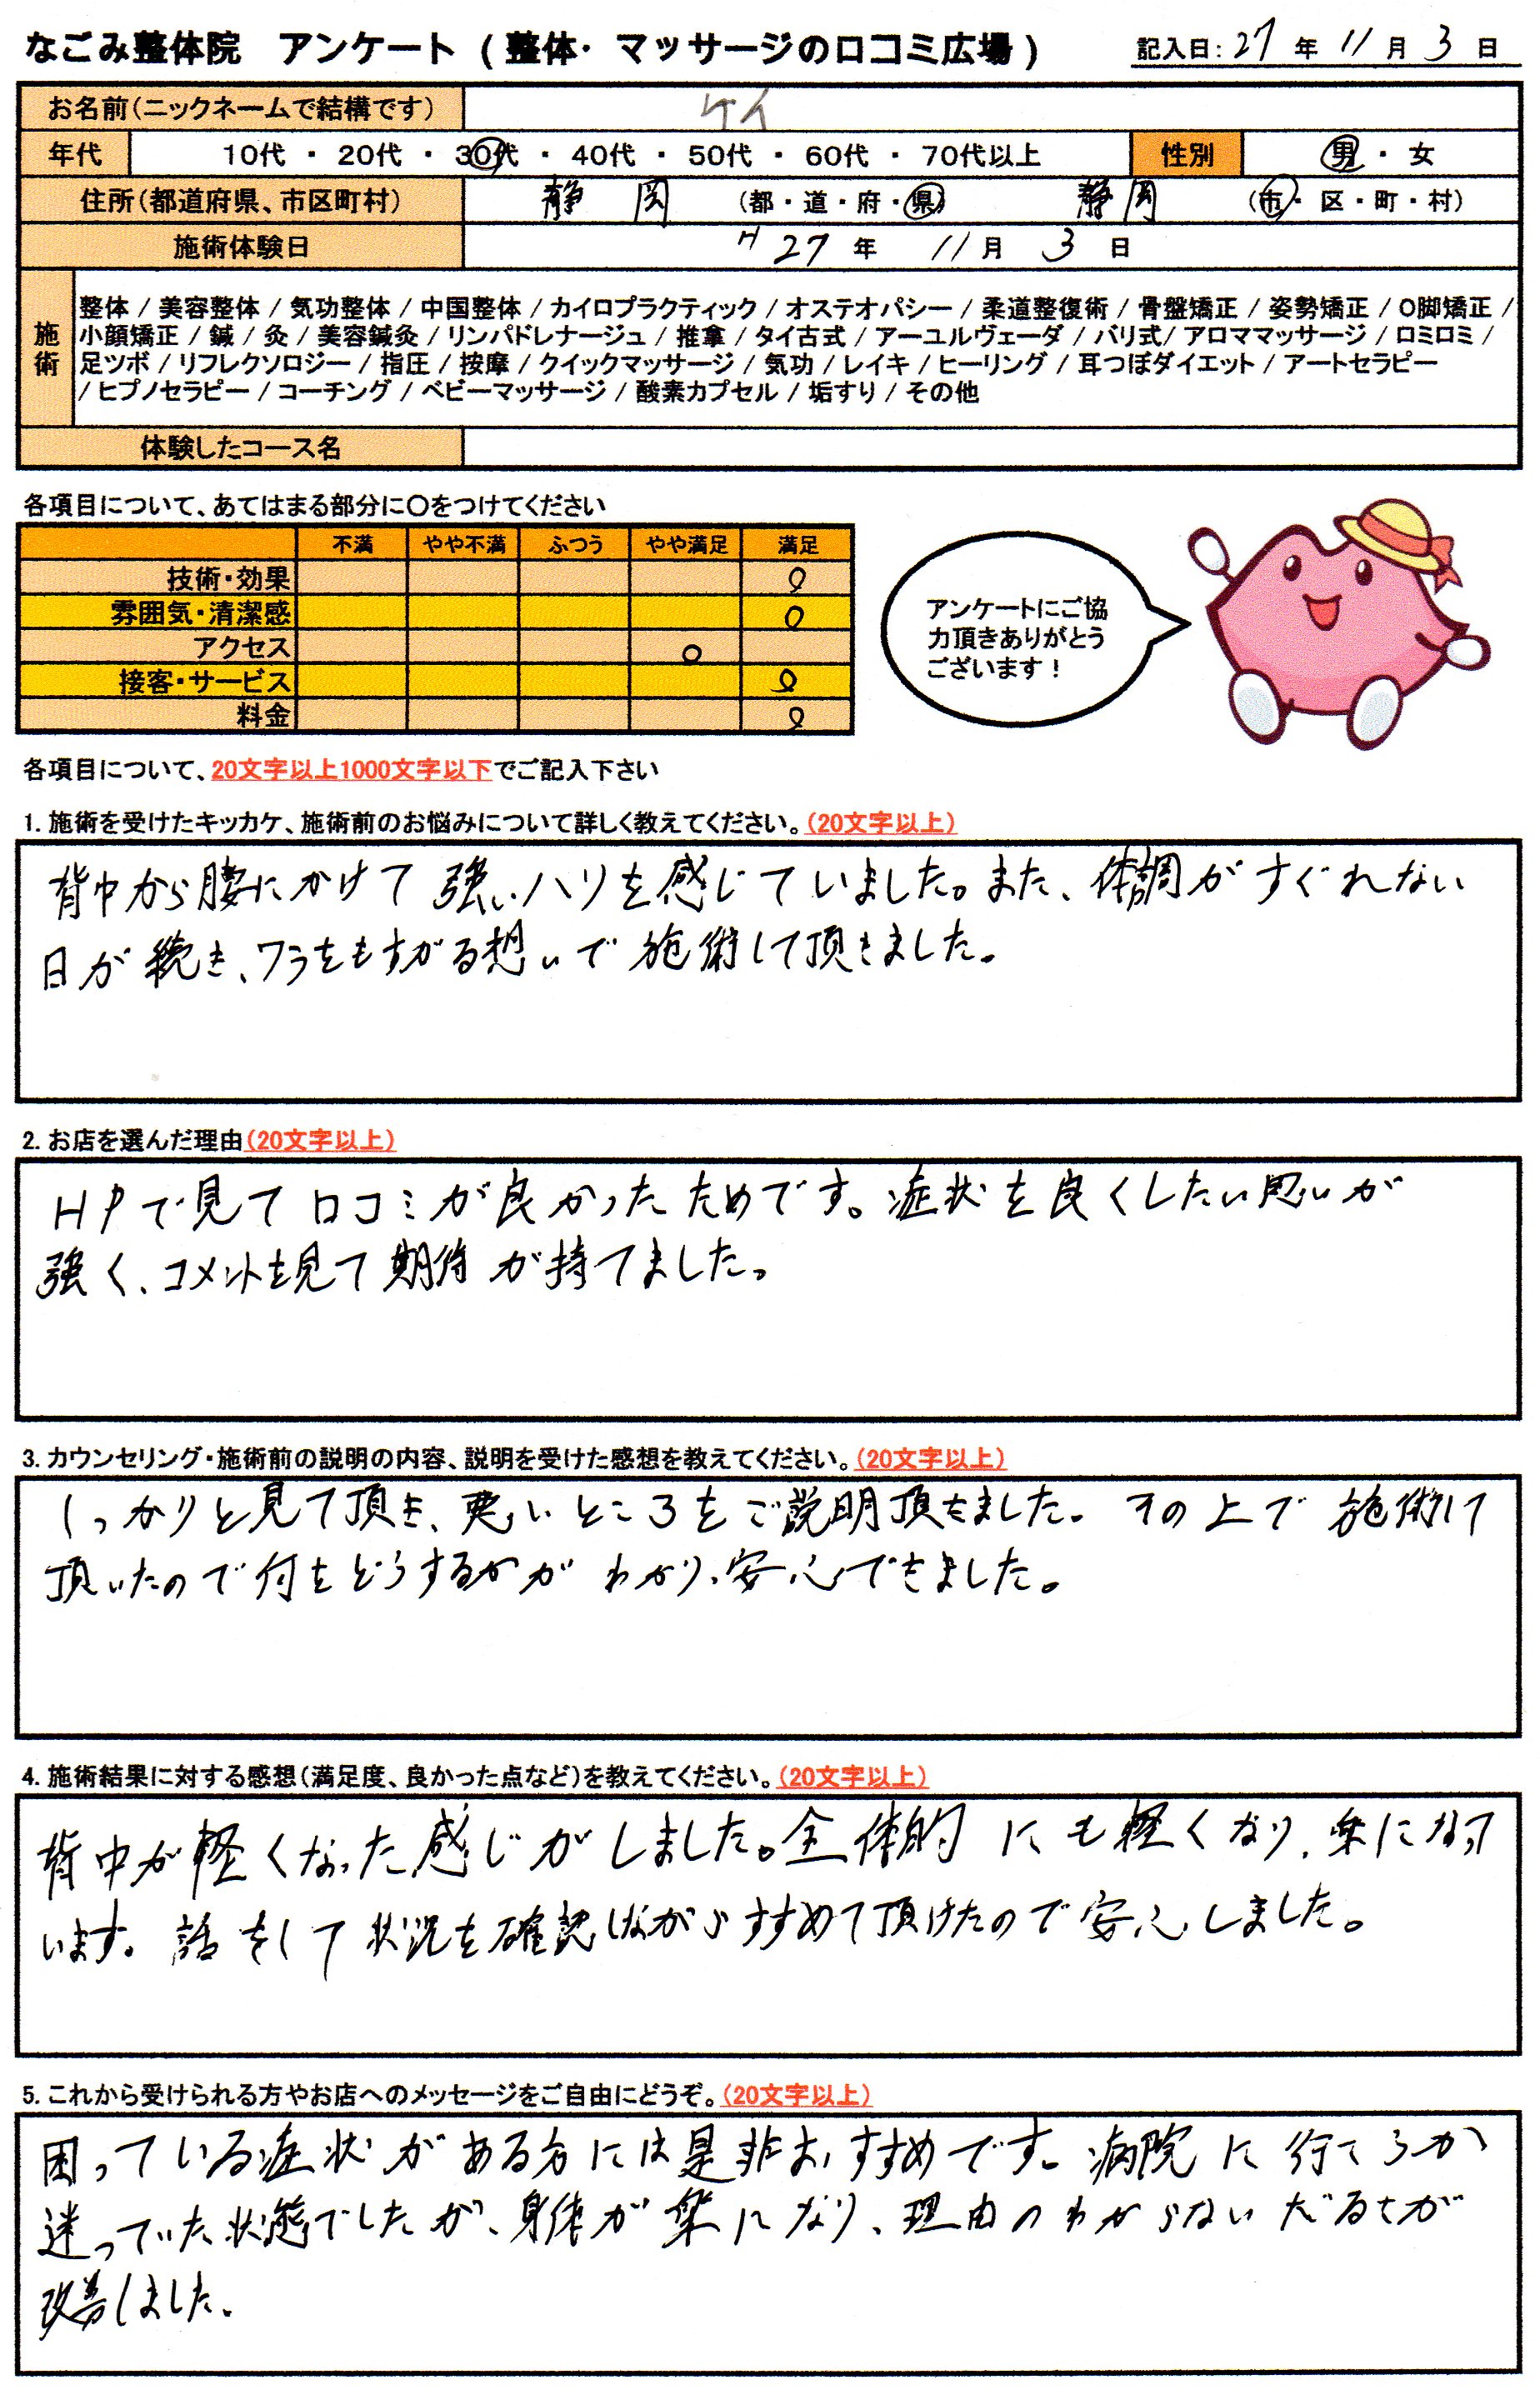 なごみ整体院 アンケート (整体・マッサージの口コミ広場) 記入日: 27 年 11 月 3 日
お名前(ニックネームで結構です) ケイ
年代 10代 ・ 20代 ・ 30代 ・ 40代 ・ 50代 ・ 60代 ・ 70代以上 性別 男 ・ 女
住所(都道府県、市区町村) 静岡 (都・道・府・県) 静岡 (市・区・町・村)
施術体験日 H 27 年 11 月 3 日
施術
整体 / 美容整体 / 気功整体 / 中国整体 / カイロプラクティック / オステオパシー / 柔道整復術 / 骨盤矯正 / 姿勢矯正 / O脚矯正 /
小顔矯正 / 鍼 / 灸 / 美容鍼灸 / リンパドレナージュ / 推拿 / タイ古式 / アーユルヴェーダ / バリ式/ アロママッサージ / ロミロミ /
足ツボ / リフレクソロジー / 指圧 / 按摩 / クイックマッサージ / 気功 / レイキ / ヒーリング / 耳つぼダイエット / アートセラピー
/ ヒプノセラピー / コーチング / ベビーマッサージ / 酸素カプセル / 垢すり / その他
体験したコース名
各項目について、あてはまる部分に○をつけてください
不満 やや不満 ふつう やや満足 満足
技術・効果 ○
雰囲気・清潔感 ○
アクセス ○
接客・サービス ○
料金 ○
アンケートにご協
力頂きありがとう
ございます!
各項目について、20文字以上1000文字以下でご記入下さい
1. 施術を受けたキッカケ、施術前のお悩みについて詳しく教えてください。(20文字以上)
背中から腰にかけて強いハリを感じていました。また、体調がすぐれない
日が続き、ワラをもすがる想いで施術して頂きました。
2. お店を選んだ理由(20文字以上)
HPで見て口コミが良かったためです。症状を良くしたい思いが
強く、コメントを見て期待が持てました。
3. カウンセリング・施術前の説明の内容、説明を受けた感想を教えてください。(20文字以上)
しっかりと見て頂き、悪いところをご説明頂きました。その上で施術して
頂いたので何をどうするかがわかり、安心できました。
4. 施術結果に対する感想(満足度、良かった点など)を教えてください。(20文字以上)
背中が軽くなった感じがしました。全体的にも軽くなり、楽になって
います。話をして状況を確認しながらすすめて頂けたので安心しました。
5. これから受けられる方やお店へのメッセージをご自由にどうぞ。(20文字以上)
困っている症状がある方には是非おすすめです。病院に行こうか
迷っていた状態でしたが、身体が楽になり、理由のわからないだるさが
改善しました。